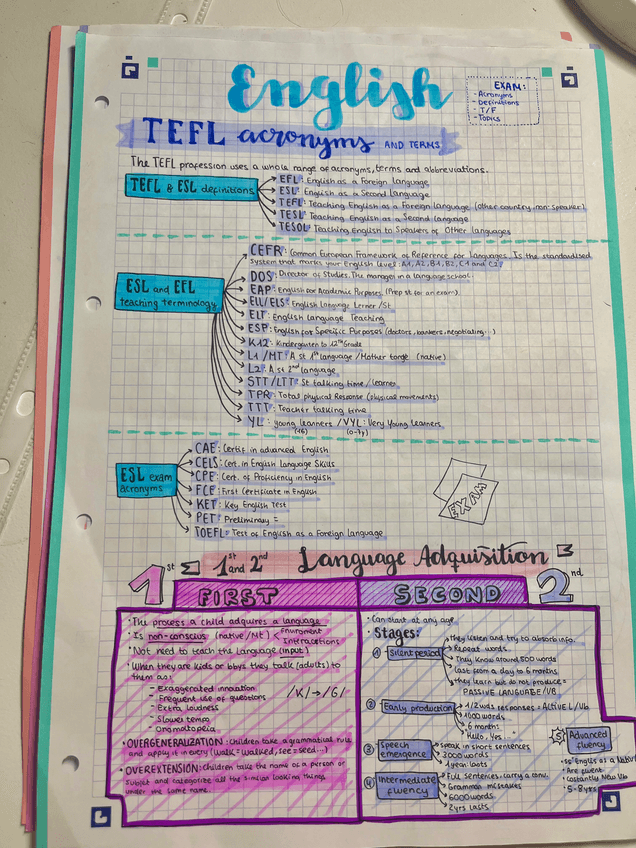 English
EXAM:
- Acronyms
- Definitions
- T/F
- Topics
TEFL acronyms AND TERMS
The TEFL profession uses a whole range of acronyms, terms and abbreviations.
TEFL & ESL definitions
EFL: English as a Foreign Language
ESL: English as a Second Language
TEFL: Teaching English as a Foreign Language (other country, non-speaker)
TESL: Teaching English as a Second Language
TESOL: Teaching English to Speakers of Other Languages
ESL and EFL
teaching terminology
CEFR: Common European Framework of Reference for Languages. Is the standardised
system that marks your English level: A1, A2, B1, B2, C1 and C2
DOS: Director of Studies. The manager in a language school.
EAP: English for Academic Purposes. (Prep st for an exam)
ELL/ELS: English Language Lerner /St
ELT: English Language Teaching
ESP: English for Specific Purposes (doctors, bankers, negotiating...)
K12: Kindergarten to 12th Grade
L1/MT: A st 1st language/Mother tonge (native)
L2: A st 2nd language
STT/LTT: St talking time / learner
TPR: Total physical Response (physical movements)
TTT: Teacher talking time
YL: young learners /VYL: Very Young Learners
(0-7y)
ESL exam
acronyms
CAE: Certif in advanced English
CELS: Cert. in English Language Skills
CPE: Cert. of Proficiency in English
FCE: First Certificate in English
KET: Key English Test
PET: Preliminary =
TOEFL: Test of English as a Foreign Language
EXAM
1st and 2nd Language Adquisition
1st FIRST
· The process a child adquires a language
· Is non-conscius (native/MT) < Enviroment
Interactions
· Not need to teach the Language (input)
· When they are kids or bbys they talk (adults) to
them as:
- Exaggerated innovation
- Frequent use of questions
- Extra loudness
- Slower tempo
- Onomatopeia
/K/→/G/
· OVERGENERALIZATION: children take a grammatical rule
and apply it in every (Walk=walked, see=seed...)
· OVEREXTENSION: children take the name of a person or
subject and categorize all the similar looking things
under the same name.
SECOND 2nd
· Can start at any age
· Stages:
1 Silent period
they listen and try to absorb info.
Repeat words.
They know around 500 words
Last from a day to 6 months
they learn but do not produce =
PASSIVE LANGUAGE/VB
2 Early production
1/2 words responses = ACTIVE L/Vb
1000 words
6 months
Hello, Yes...
3 Speech
emergence
speak in short sentences
3000 words
1 year lasts
4 Intermediate
fluency
Full sentences. carry a conv.
Grammar mistakes
6000 words
2yrs lasts
5 Advanced
fluency
· Are fluent
· Constantly New Vb
· 5-8yrs